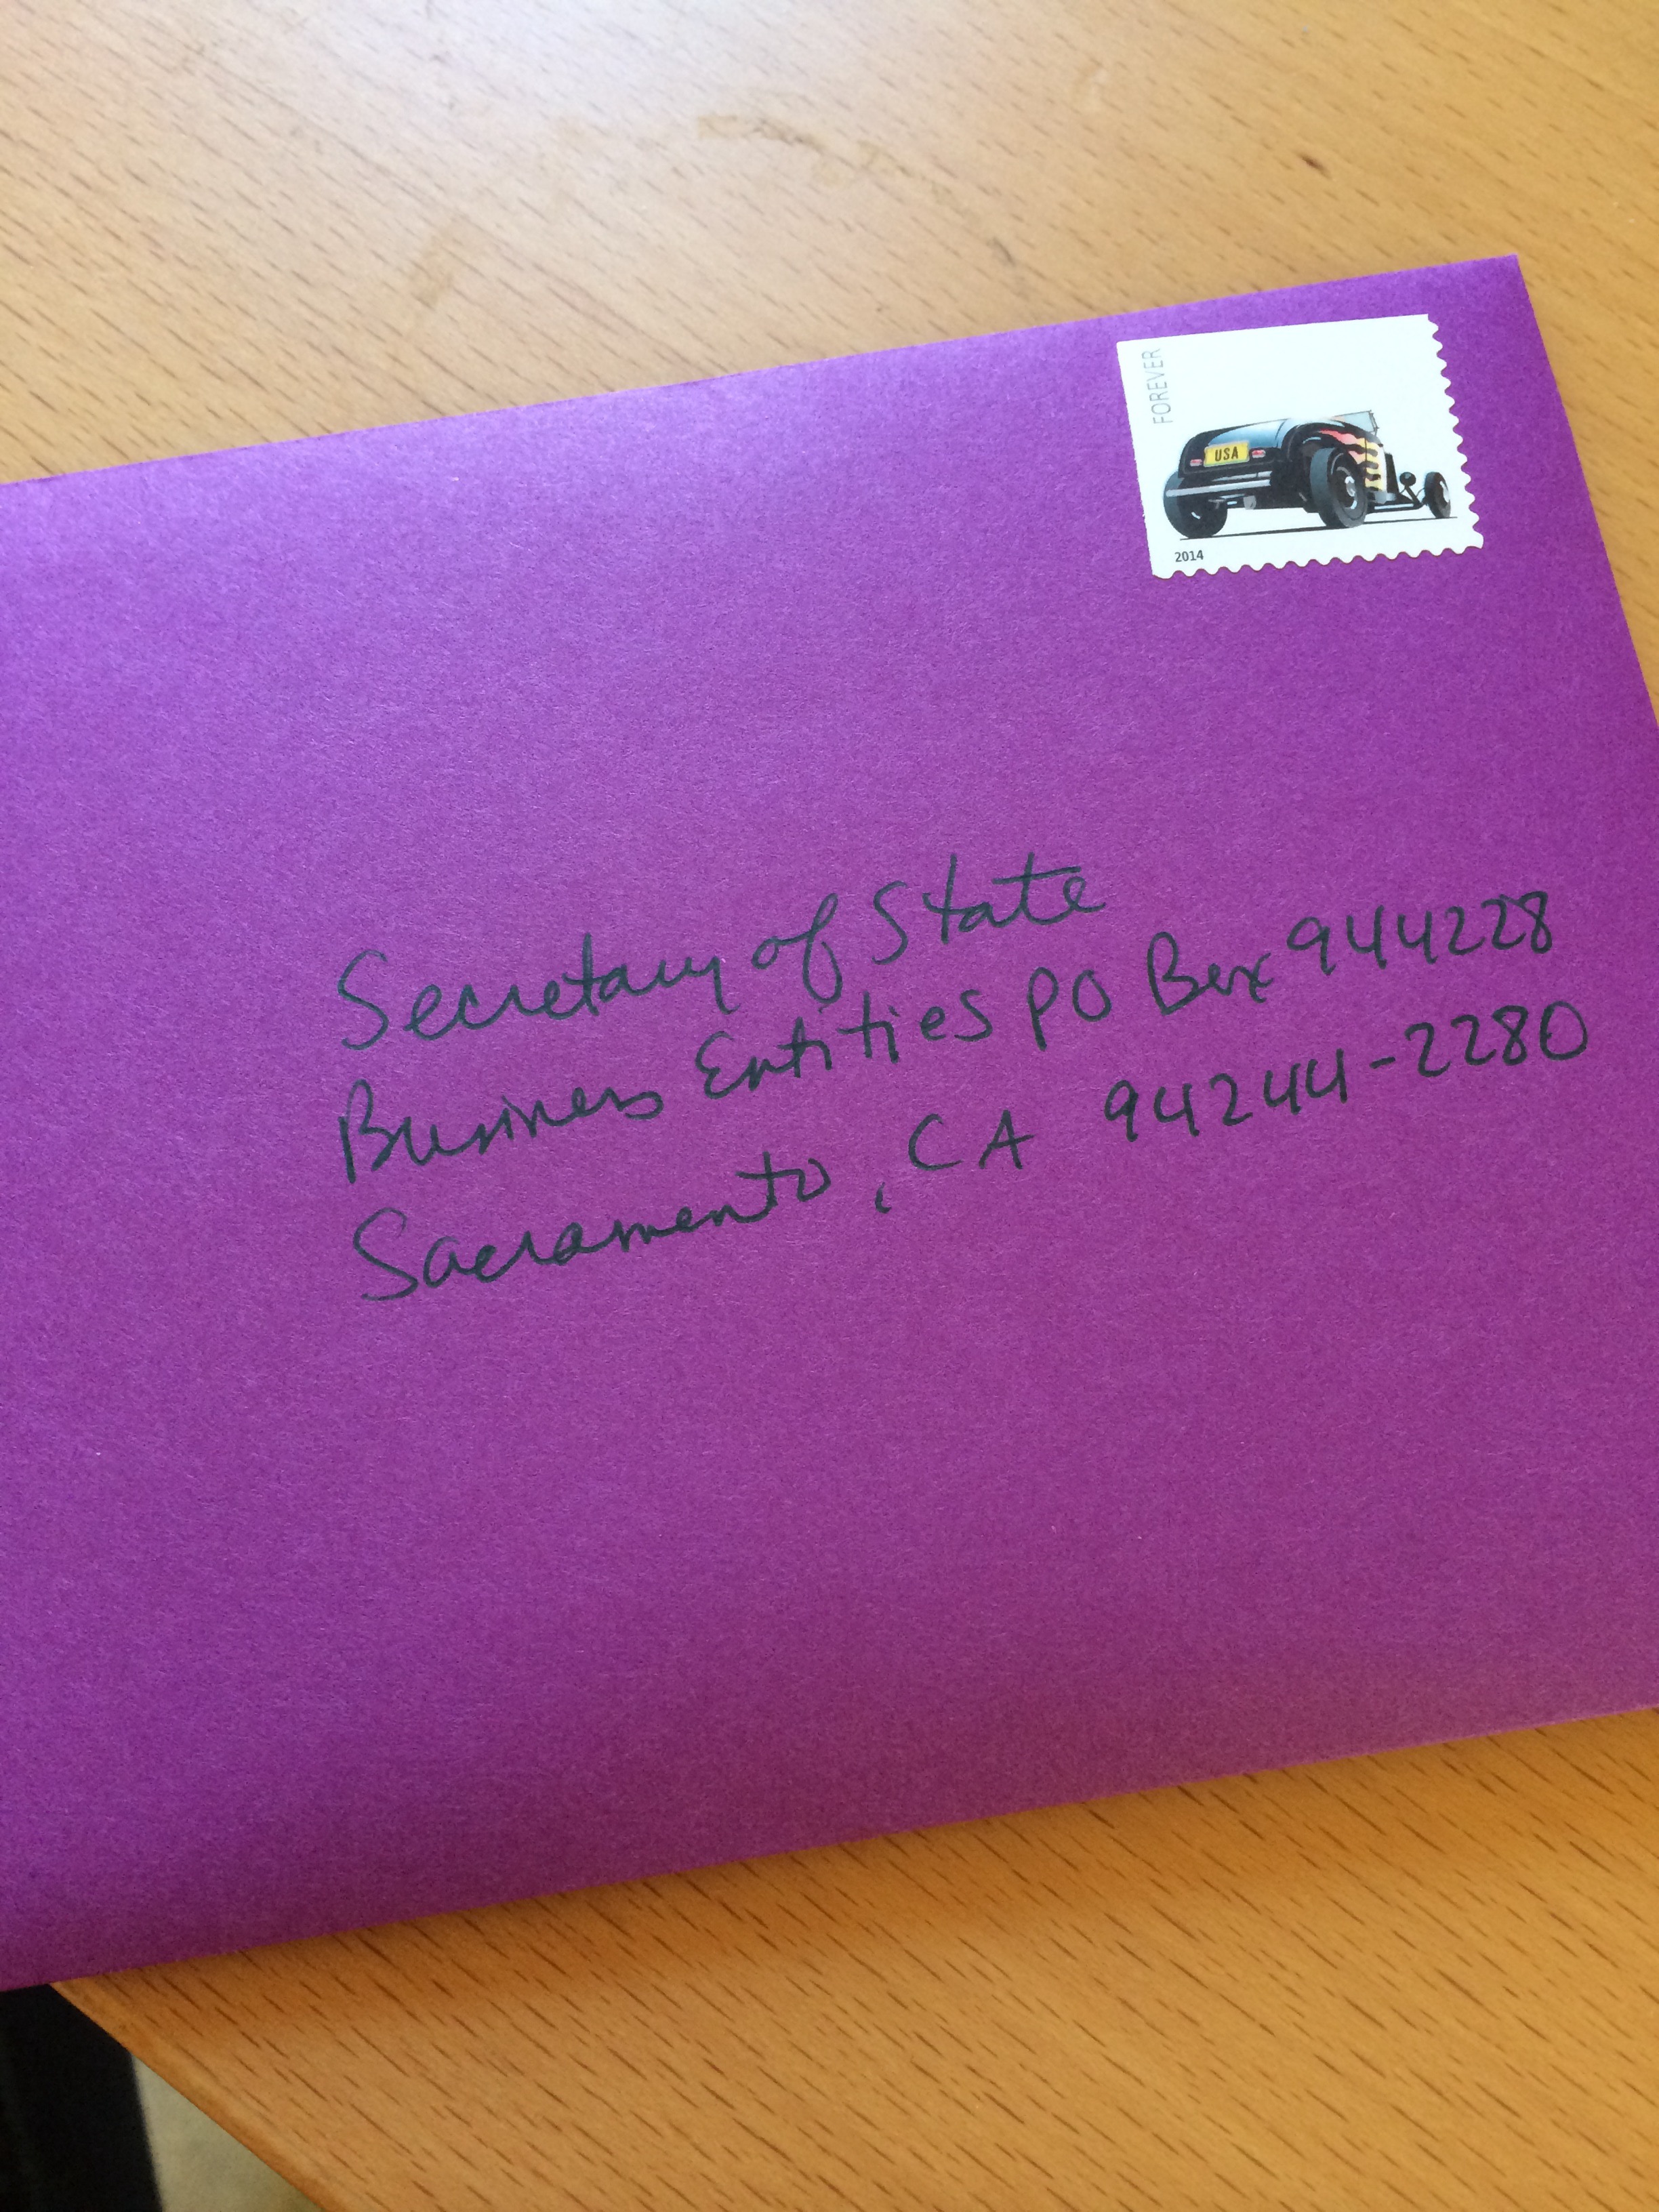 FOREVER
USA
2014
Secretary of State
Business Entities PO Box 944228
Sacramento, CA 94244-2280